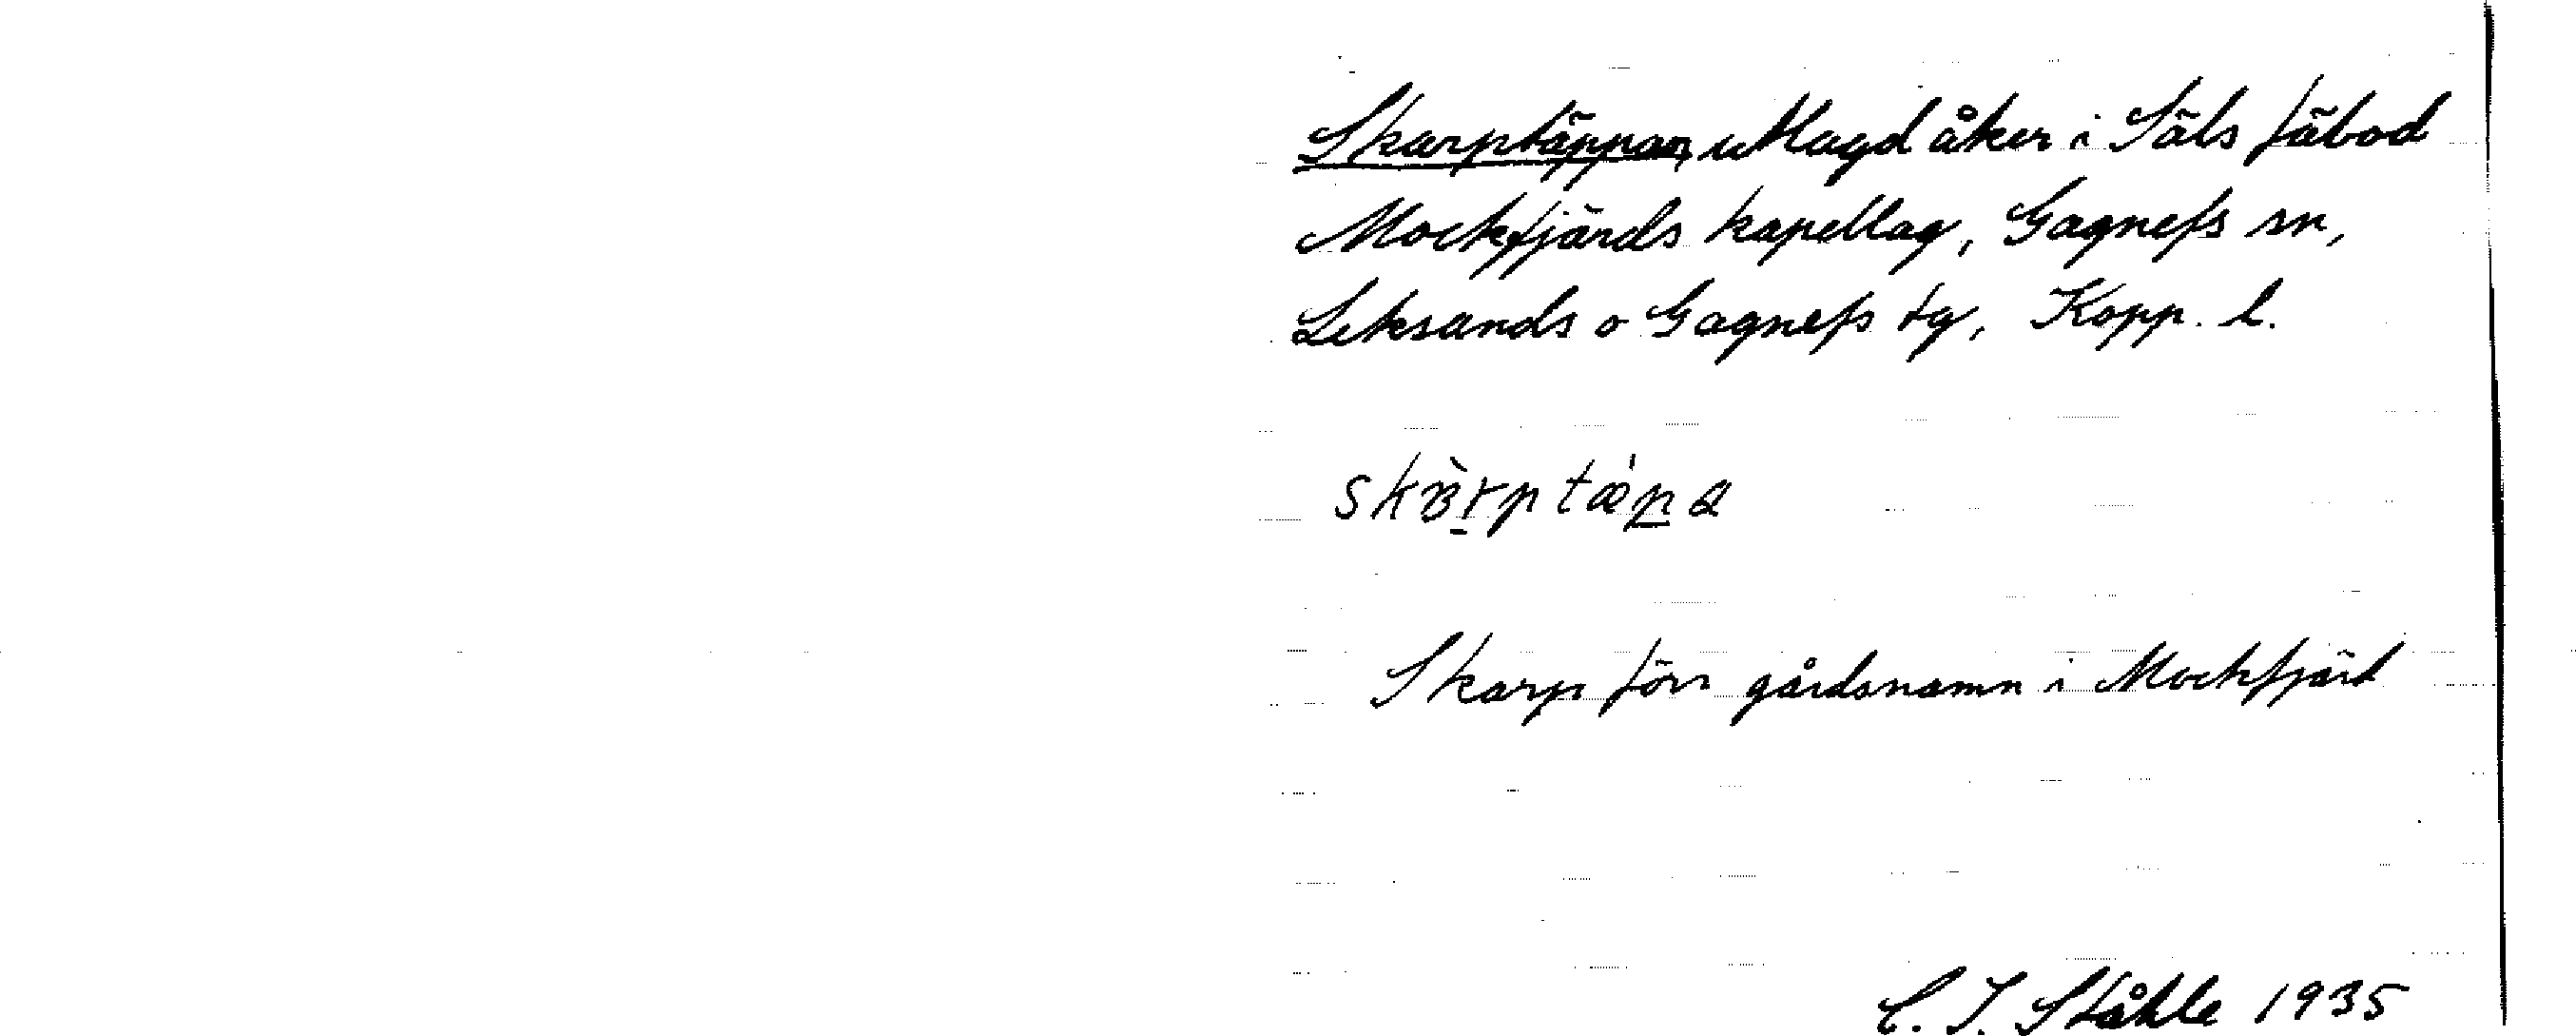 Skarptäppan, utlagd åker i Säls fäbod
Mockfjärds kapellag, Gagnefs sn,
Leksands o Gagnefs tg, Kopp. l.
Skarp förr gårdsnamn i Mockfjärd
C. I. Ståhle 1935